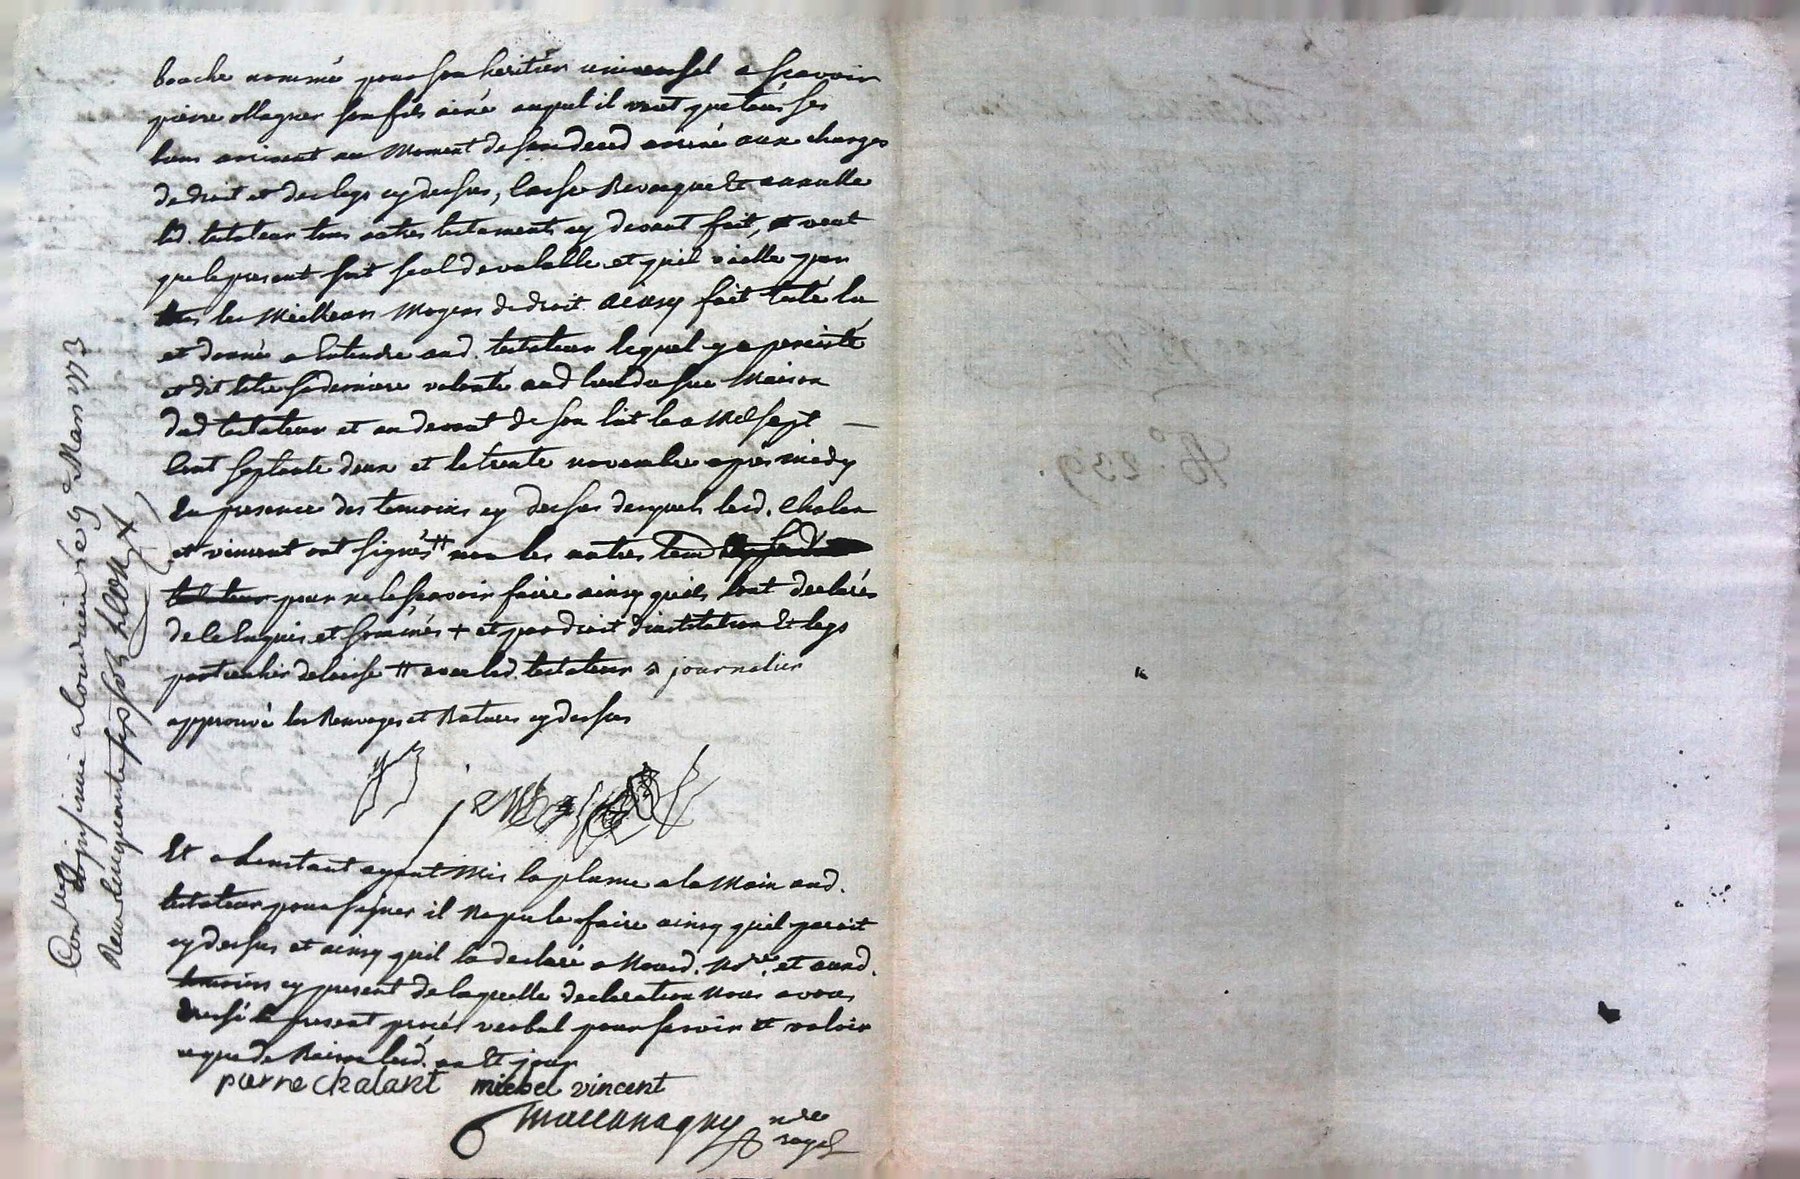 bouche nommé pour son heritier universel a scavoir
pierre Magner son fils ainé auquel il veut que tous ses
biens arrivent au Moment de son deced arrivé aux charges
de droit et des legs cy dessus, casse Revoque et annulle
led. testateur tous autres testaments cy devant fait, et veut
que le present soit seul de valable et quil vaille par
les Meilleurs Moyens de droit ainsy fait testé lu
et donné a Entendre aud. testateur lequel y a persisté
et dit etre sa derniere volonté aud lieu dessus Maison
dud testateur et au devant de son lit le a Mil sept
Cent septante deux et le trente novembre apres midy
En presence des temoins cy dessus desquels lesd. Chalan
et vincent ont signés # non les autres
pour ne le scavoir faire ainsy quils lont declarés
de ce Enquis et sommés + et par droit dinstitution et legs
particulier delaisse # avec led. testateur journalier
approuvé les Renvoyes et Ratures cy dessus
Et a Linstant ayant Mis la plume a la Main aud.
testateur pour signer il Na pu le faire ainsy quil paroit
cy dessus et ainsy quil la declaré a Nousd. Nore. et auxd.
temoins cy present de laquelle declaration Nous avons
dressé le present procés verbal pour servir et valoir
ce que de Raison lesd. an et jour
pierre chalant michel vincent
nre
royal
Conlle a lourdrieu le 9e Mars 1773
Reçu cinquante six sols
No. 239.